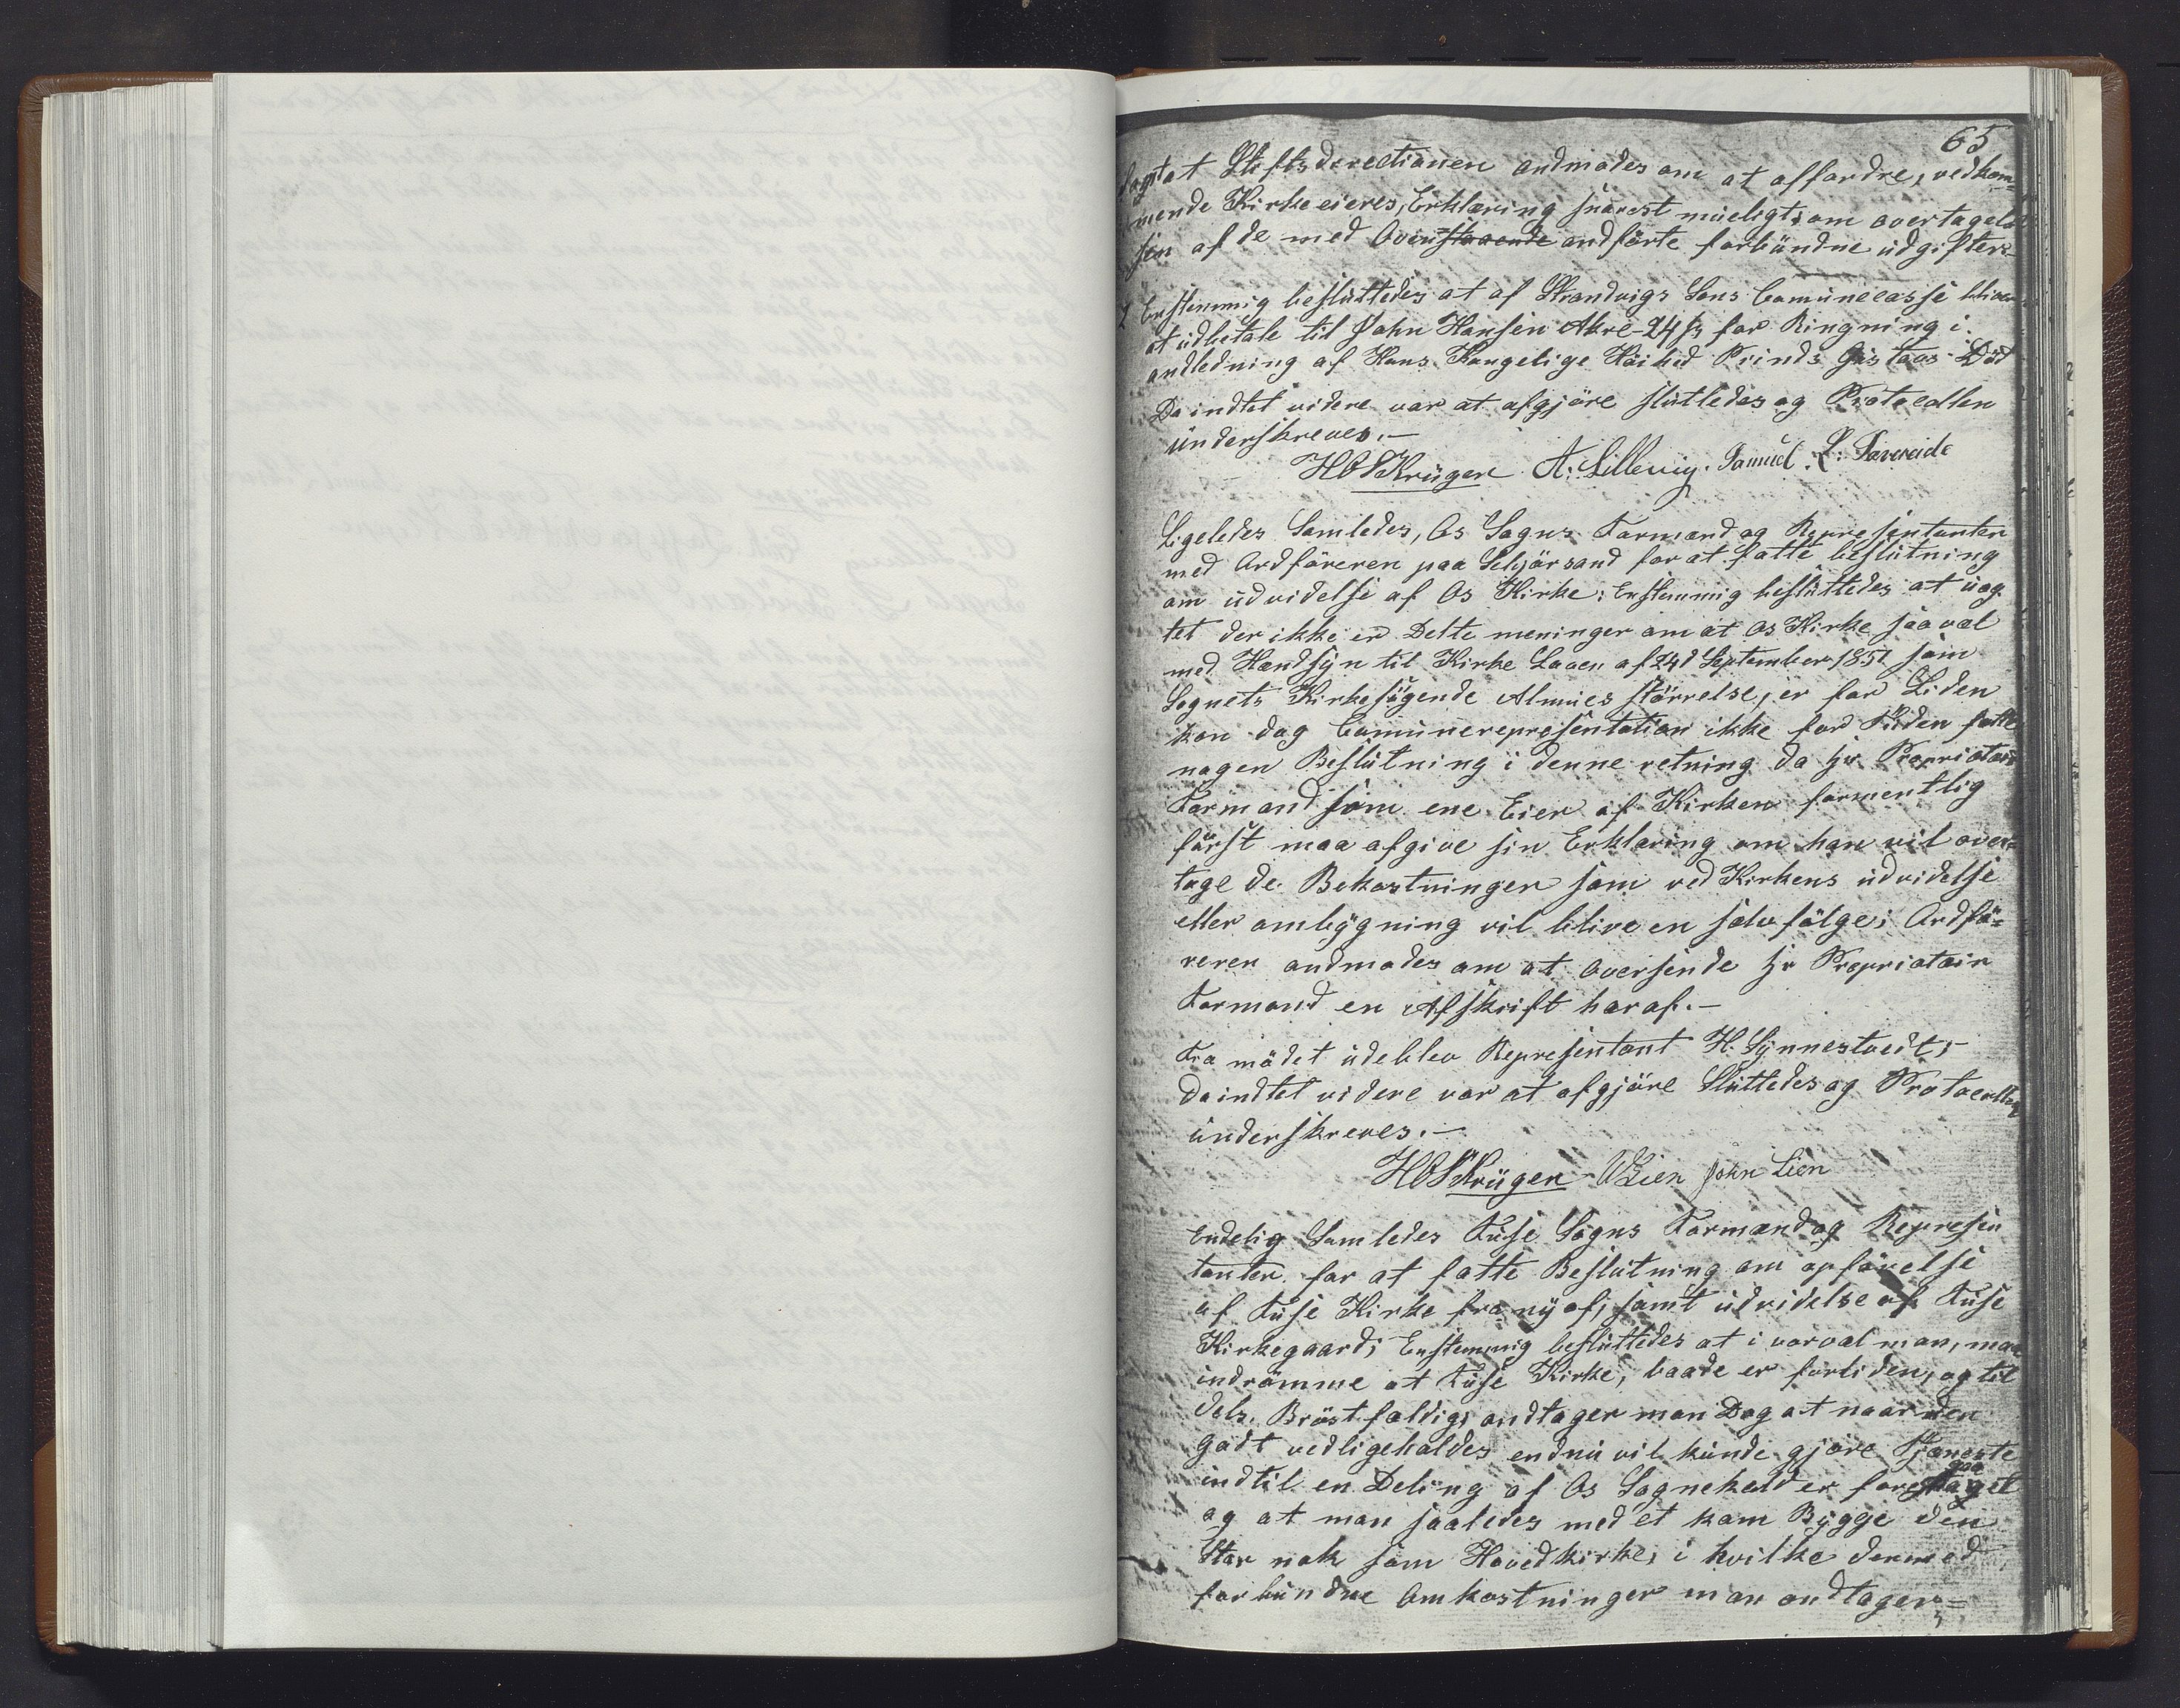 65
sagt at Stiftsderectionen andmodes om at affordre, vedkom=
mende Kirkeeieres, Erklæring snarest mueligt, om overtagel
sen af de med Ovenstaaende andførte forbundne udgifter.-
2 Enstemmig besluttedes at af Strandvigs Sons Comunecasse bliver
at udbetale til John Hansen Akre - 24 s for Ringning i
andledning af Hans Kongelige Høihed Prinds Gustavs Død
Da indtet videre var at afgjøre sluttedes og Protocollen
underskreves.-
HOSKrüger A: Lillevig. Samuel. L:
Ligeledes Samledes, Os Sogns Formænd og Representanter
med Ordføreren paa Schjørsand for at fatte beslutning
om udvidelse af Os Kirke; Enstemmig besluttedes at uag
tet der ikke er Delte meninger om at Os Kirke saavæl
med Hændsyn til Kirke Loven af 24d September 1851 som
Sognets Kirkesøgende Almues størrelse, er for Liden
kan dog Comunerepresentation ikke for Tiden fatte
nogen Beslutning i denne retning da Hr Propriatær
Formand som ene Eier af Kirken formentlig
først maa afgive sin Erklæring om han vil over=
tage de Bekostninger som ved Kirkens udvidelse
eller ombygning vil blive en sølvfølge; Ordfø=
reren andmodes om at oversende Hr Propriatair
Formand en Afskrift heraf.-
Fra mødet udeblev Representant H. Synnestvedt;-
Da indtet videre var at afgjøre Sluttedes og Protocollen
underskreves.-
HOSKrüger Lien John Lien
Endelig Samledes Fuse Sogns Formænd og Represen
tanter. for at fatte Beslutning om opførelse
af Fuse Kirke fra ny af, samt udvidelse af Fuse
Kirkegaard; Enstemmig besluttedes at i vorvæl man, maa
indrømme at Fuse Kirke, baade er forliden, og til
dels. Brøstfældig; andtager man Dog at naar den
Godt vedligeholdes endnu vil kunde gjøre Tjæneste
indtil en Deling af Os Sognekald er foregaaet
og at man saaledes med et kam Bygge den
Stor nok som Hovedkirke, i hvilke dermed
forbundne Omkostninger man andtager=